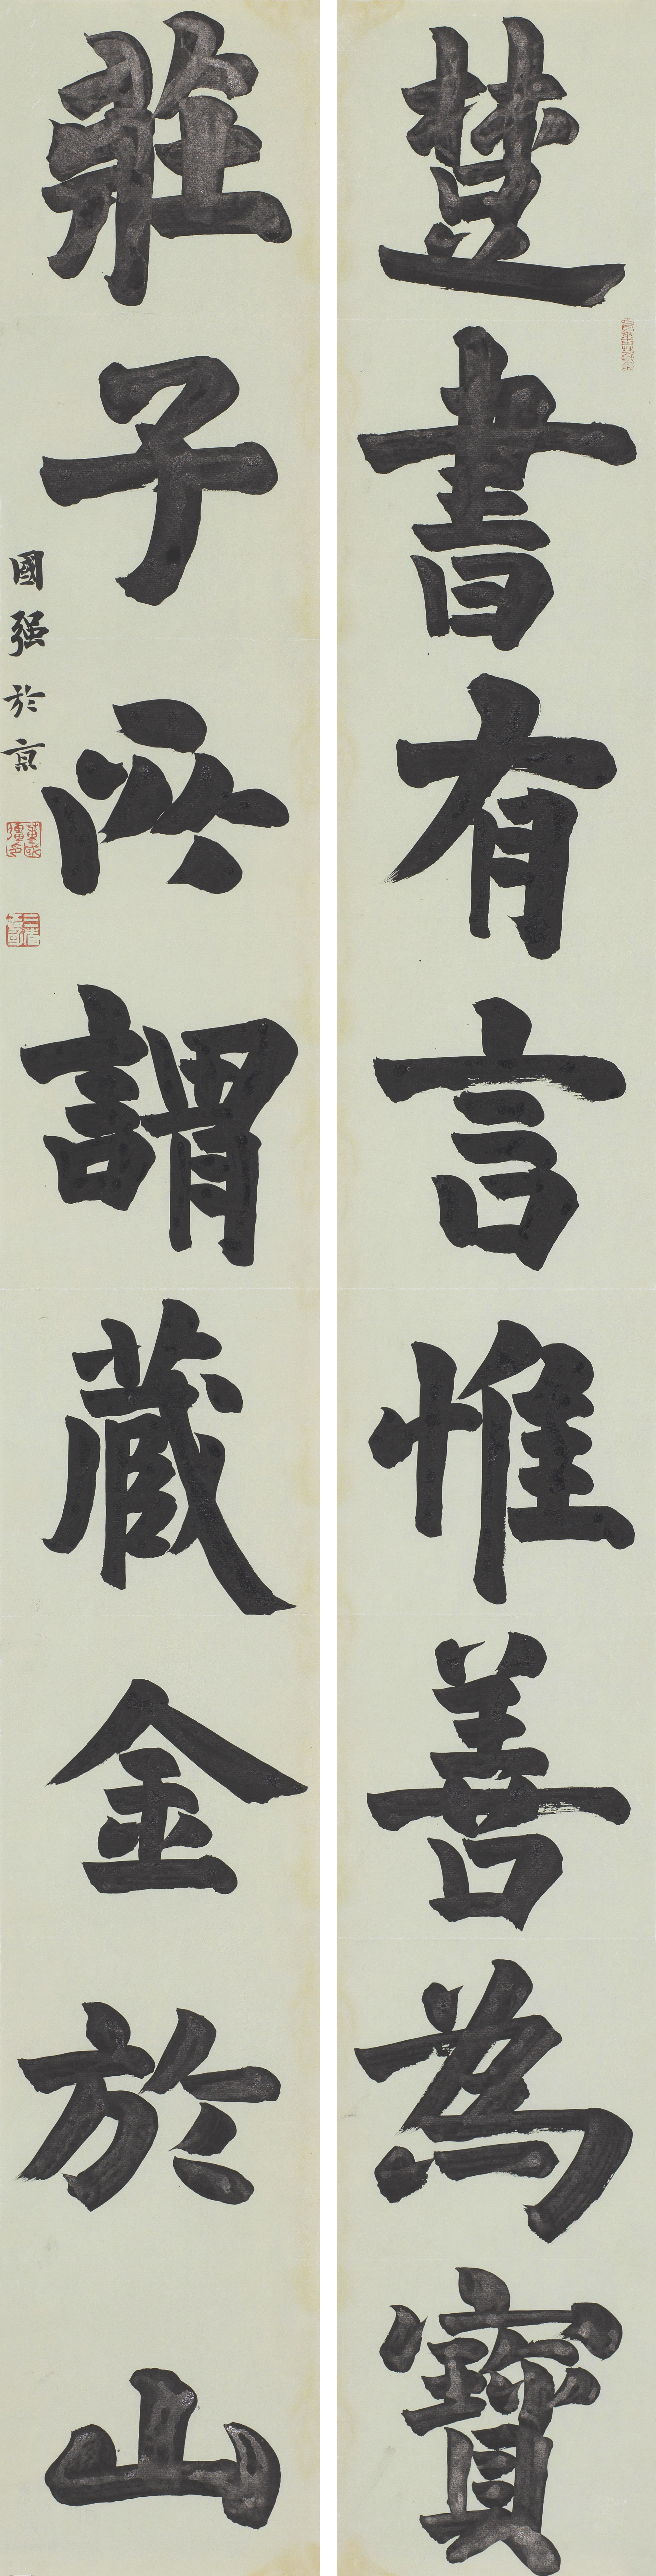 楚書有言惟善為寶
莊子所謂藏金於山
國強於京